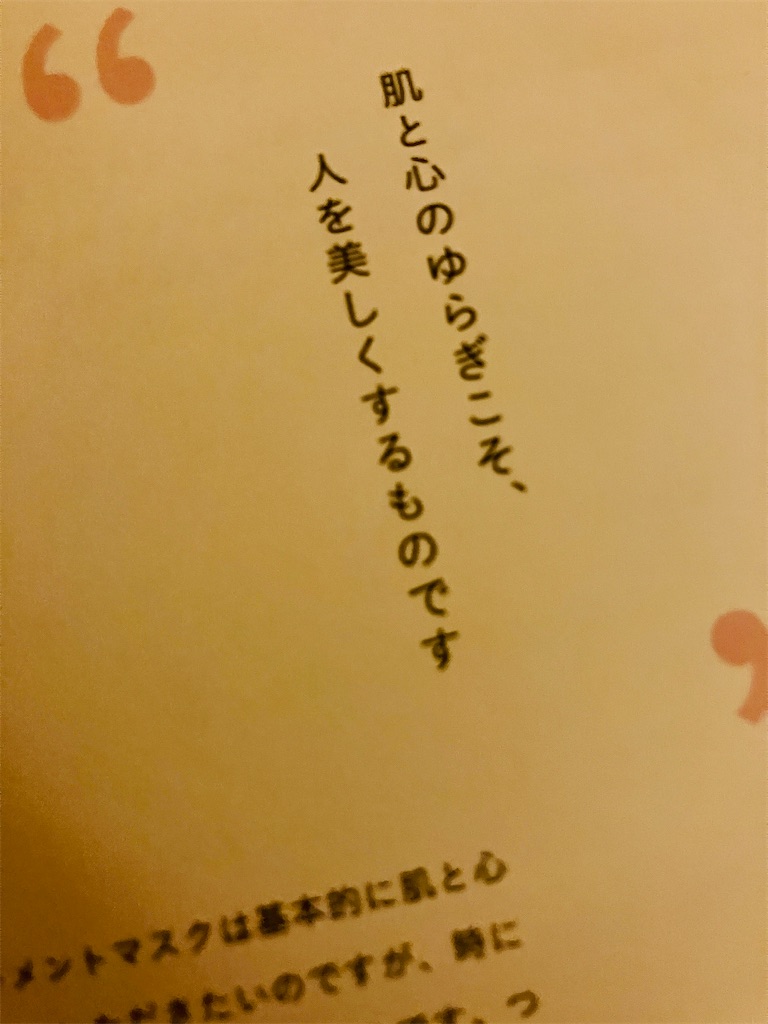 肌と心のゆらぎこそ、
人を美しくするものです
メントマスクは基本的に肌と心
だきたいのですが、時に
です。つ